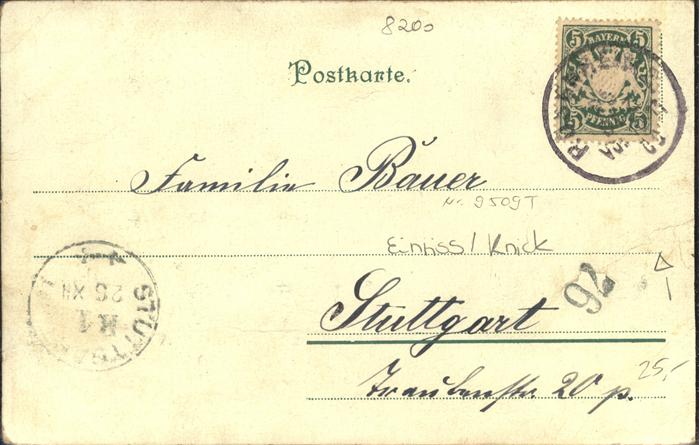 8200
5 BAYERN 5
5 PFENNIG 5
Postkarte.
Familie Bauer
Nr. 9509T
Einriss / Knick
92
Stuttgart
STUTTGART
K1
26 XII
Traubenstr 20 p.
25,-